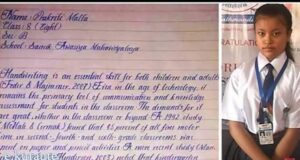 Name: Prakriti Malla
Class: 8 (Eight)
Sec: B
School: Sainik Awasiya Mahavidyalaya
Handwriting is an essential skill for both children and adults
(Feder & Majnemer, 2007). Even in the age of technology, it
remains the primary tool of communication and knowledge
assessment for students in the classroom. The demands for it
are great, whether in the classroom or beyond. A 1992 study
(McHale & Cermak) found that 85 percent of all fine motor
time in second-, fourth- and sixth-grade classrooms was
spent on paper and pencil activities. A more recent study (Marr,
2003) noted that kindergarten